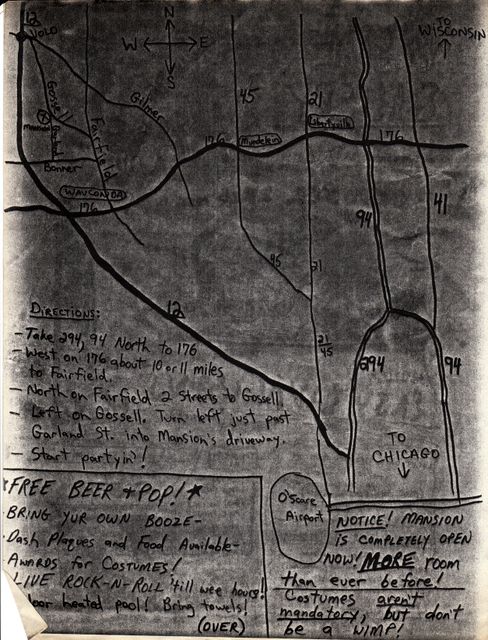 12
VOLO
N
W E
S
TO
WISCONSIN
Gossell
Garland
Mansion
Fairfield
Gilmer
45
21
176
Mundelein
Libertyville
176
Bonner
WAUCONDA
176
94
41
45
21
12
21
45
294
94
DIRECTIONS:
- Take 294, 94 North to 176
- West on 176 about 10 or 11 miles
to Fairfield.
- North on Fairfield 2 streets to Gossell
- Left on Gossell. Turn left just past
Garland St. into Mansion's driveway.
- Start partyin'!
TO
CHICAGO
O'Scare
Airport
*FREE BEER + POP!*
· BRING YUR OWN BOOZE-
· Dash Plaques and Food Available-
· AWARDS for COSTUMES!
LIVE ROCK-N-ROLL 'till wee hours!
heated pool! Bring towels!
(OVER)
NOTICE! MANSION
IS COMPLETELY OPEN
NOW! MORE room
than ever before!
Costumes aren't
mandatory, but don't
be a WIMP!